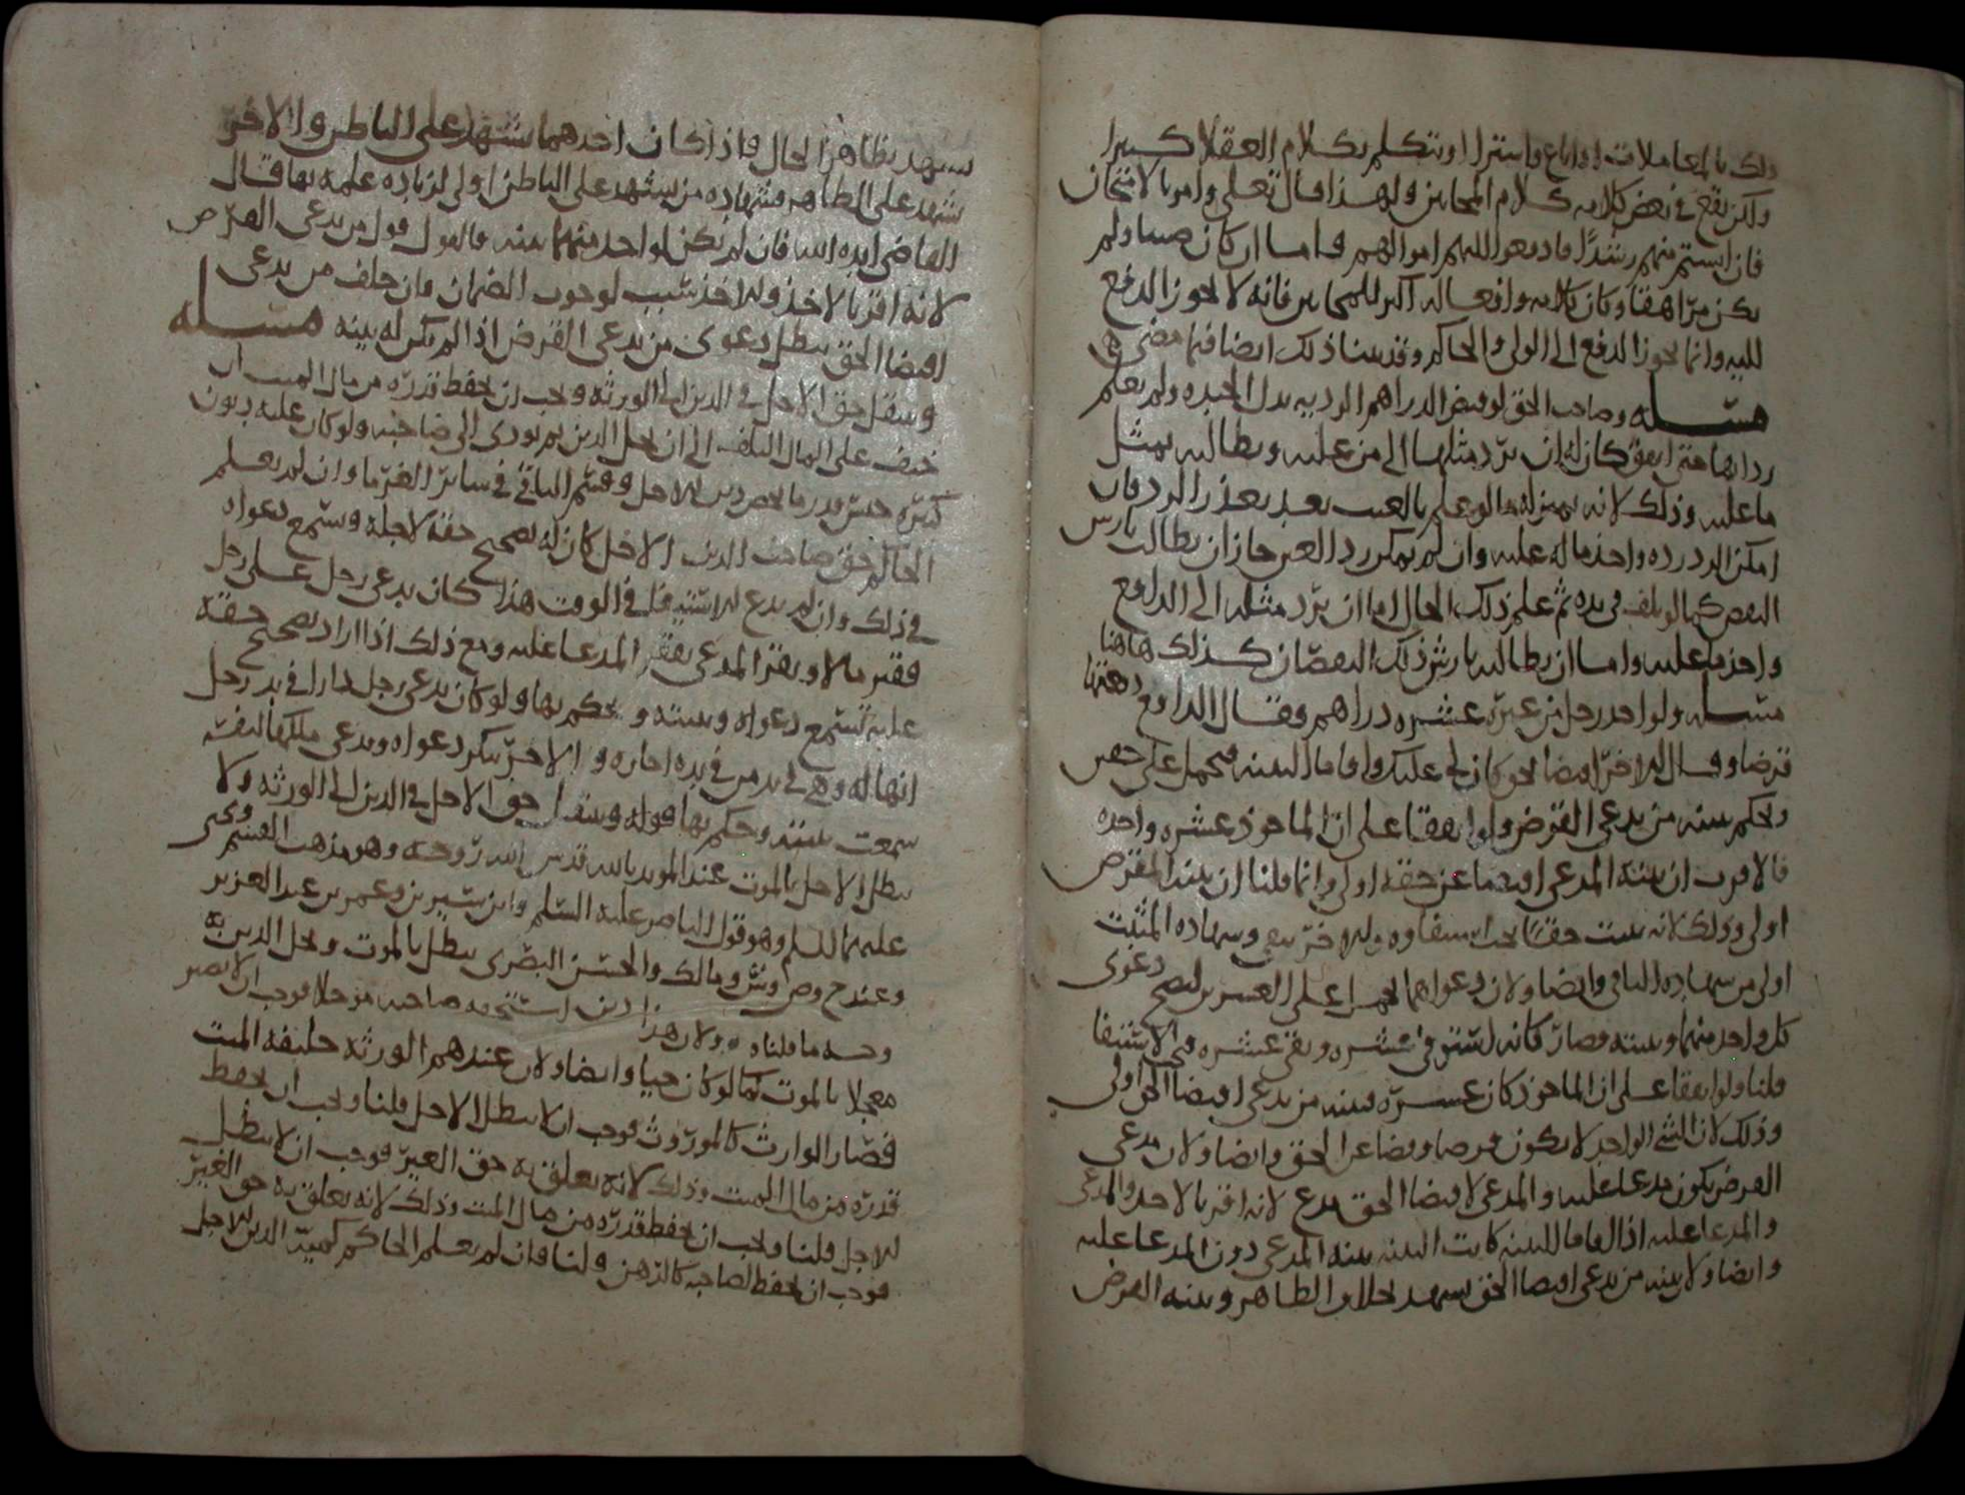 ذلك بالمعاملات اذا باع واشترا او يتكلم بكلام العقلا كثيرا
ولكن يقع في بعض كلامه كلام المجانين ولهذا قال تعلى وامر بالامتحان
فان انستم منهم رشدا فادفعوا اليهم اموالهم فاما ان كان صبيا ولم
يكن مراهقا وكان كلامه وافعاله اكثر للمجانين فانه لا يجوز الدفع
اليه وانما يجوز الدفع الى الولي والحاكم وقد بينا ذلك ايضا فيما مضى
مسله وصاحب الحق لو قبض الدراهم الرديه بدل الجيده ولم يعلم
رداتها حتى انفق كان له ان يرد مثلها الى من عليه ويطالبه بمثل
ما عليه وذلك لانه بمنزله ما لو علم بالعيب بعد تعذر الرد فان
امكن الرد رده واخذ ماله عليه وان لم يمكن رد العين جاز ان يطالب بارش
النقص كما لو تلف في يده ثم علم ذلك الحال اما ان يرد مثله الى الدافع
واخذ ما عليه واما ان يطالبه بارش ذلك النقصان كذلك هاهنا
مسله ولو اخذ رجل من غيره عشره دراهم وقال الدافع دفعتها
قرضا وقال الاخر اقتضا لحق كان لي عليك واقاما البينه فيحمل على حقين
ويحكم ببينه من يدعي القرض ولو اتفقا على ان الماخوذ عشره واحده
فالاقرب ان بينه المدعي اقتضا عن حقه اولى وانما قلنا ان بينه المقرض
اولى وذلك لانه يثبت حقا يجب استيفاوه والاخر ينفي وشهاده المثبت
اولى من شهاده النافي وايضا ولان دعواهما تحمل على العشرين لتصح دعوى
كل واحد منهما وبينته فصار كانه استوفى عشره وبقي عشره فيجب الاستيفا
قلنا ولو اتفقا على ان الماخوذ كان عشره فبينه من يدعي اقتضا الحق اولى
وذلك لان الشي الواحد لا يكون قرضا وقضا عن الحق وايضا ولان مدعي
القرض يكون مدعا عليه والمدعي لاقتضا الحق مدع لانه اقر بالاخذ والمدعي
والمدعا عليه اذا اقاما البينه كانت البينه بينه المدعي دون المدعا عليه
وايضا ولان بينه من يدعي اقتضا الحق تشهد بخلاف الظاهر وبينه القرض
تشهد بظاهر الحال فاذا كان احدهما تشهد على الباطن والاخر
تشهد على الظاهر فشهاده من يشهد على الباطن اولى لزياده علمه بها قال
القاضي ايده الله فان لم يكن لواحد منهما بينه فالقول قول من يدعي القرض
لانه اقر بالاخذ والاخذ سبب لوجوب الضمان فان حلف من يدعي
اقتضا الحق بطل دعوى من يدعي القرض اذا لم يكن له بينه مسله
وينتقل حق الاجل في الدين الى الورثه ويجب ان يحفظ قدره من مال الميت ان
خيف على المال التلف الى ان يحل الدين ثم يودى الى صاحبه ولو كان عليه ديون
كثيره حبس قدر ما يخص دين الاجل وقسم الباقي في سائر الغرما وان لم يعلم
الحاكم حق صاحب الدين الاجل كان له تصحيح حقه لاجله وسمع دعواه
في ذلك وان لم يدع الاستيفا في الوقت هذا كان يدعي رجل على رجل
فقير مالا ويقر المدعي بفقر المدعا عليه ومع ذلك اذا اراد تصحيح حقه
عليه تسمع دعواه وبينته ويحكم بها ولو كان يدعي رجل دارا في يد رجل
انها له وهي في يد من في يده اجاره والاخر ينكر دعواه ويدعي ملكها لنفسه
سمعت بينته وحكم بها قوله وينتقل حق الاجل في الدين الى الورثه ولا
يبطل الاجل بالموت عند المويد بالله قدس الله روحه وهو مذهب القسم ويحيى
عليهما السلم وهو قول الناصر عليه السلم وابن سيرين وعمر بن عبد العزيز
وعند ح وص وش ومالك والحسن البصري يبطل بالموت ويحل الدين به
وجه ما قلناه ولان هذا دين استحقه صاحبه موجلا فوجب ان لا يصير
معجلا بالموت كما لو كان حيا وايضا ولان عندهم الورثه خليفه الميت
فصار الوارث كالموروث فوجب ان لا يبطل الاجل قلنا ويجب ان يحفظ
قدره من مال الميت وذلك لانه يعلق به حق الغير فوجب ان لا يبطل
الاجل قلنا ويجب ان يحفظ قدره من مال الميت وذلك لانه يعلق به حق الغير
فوجب ان يحفظ لصاحبه كالرهن قلنا فان لم يعلم الحاكم كميه الدين الاجل